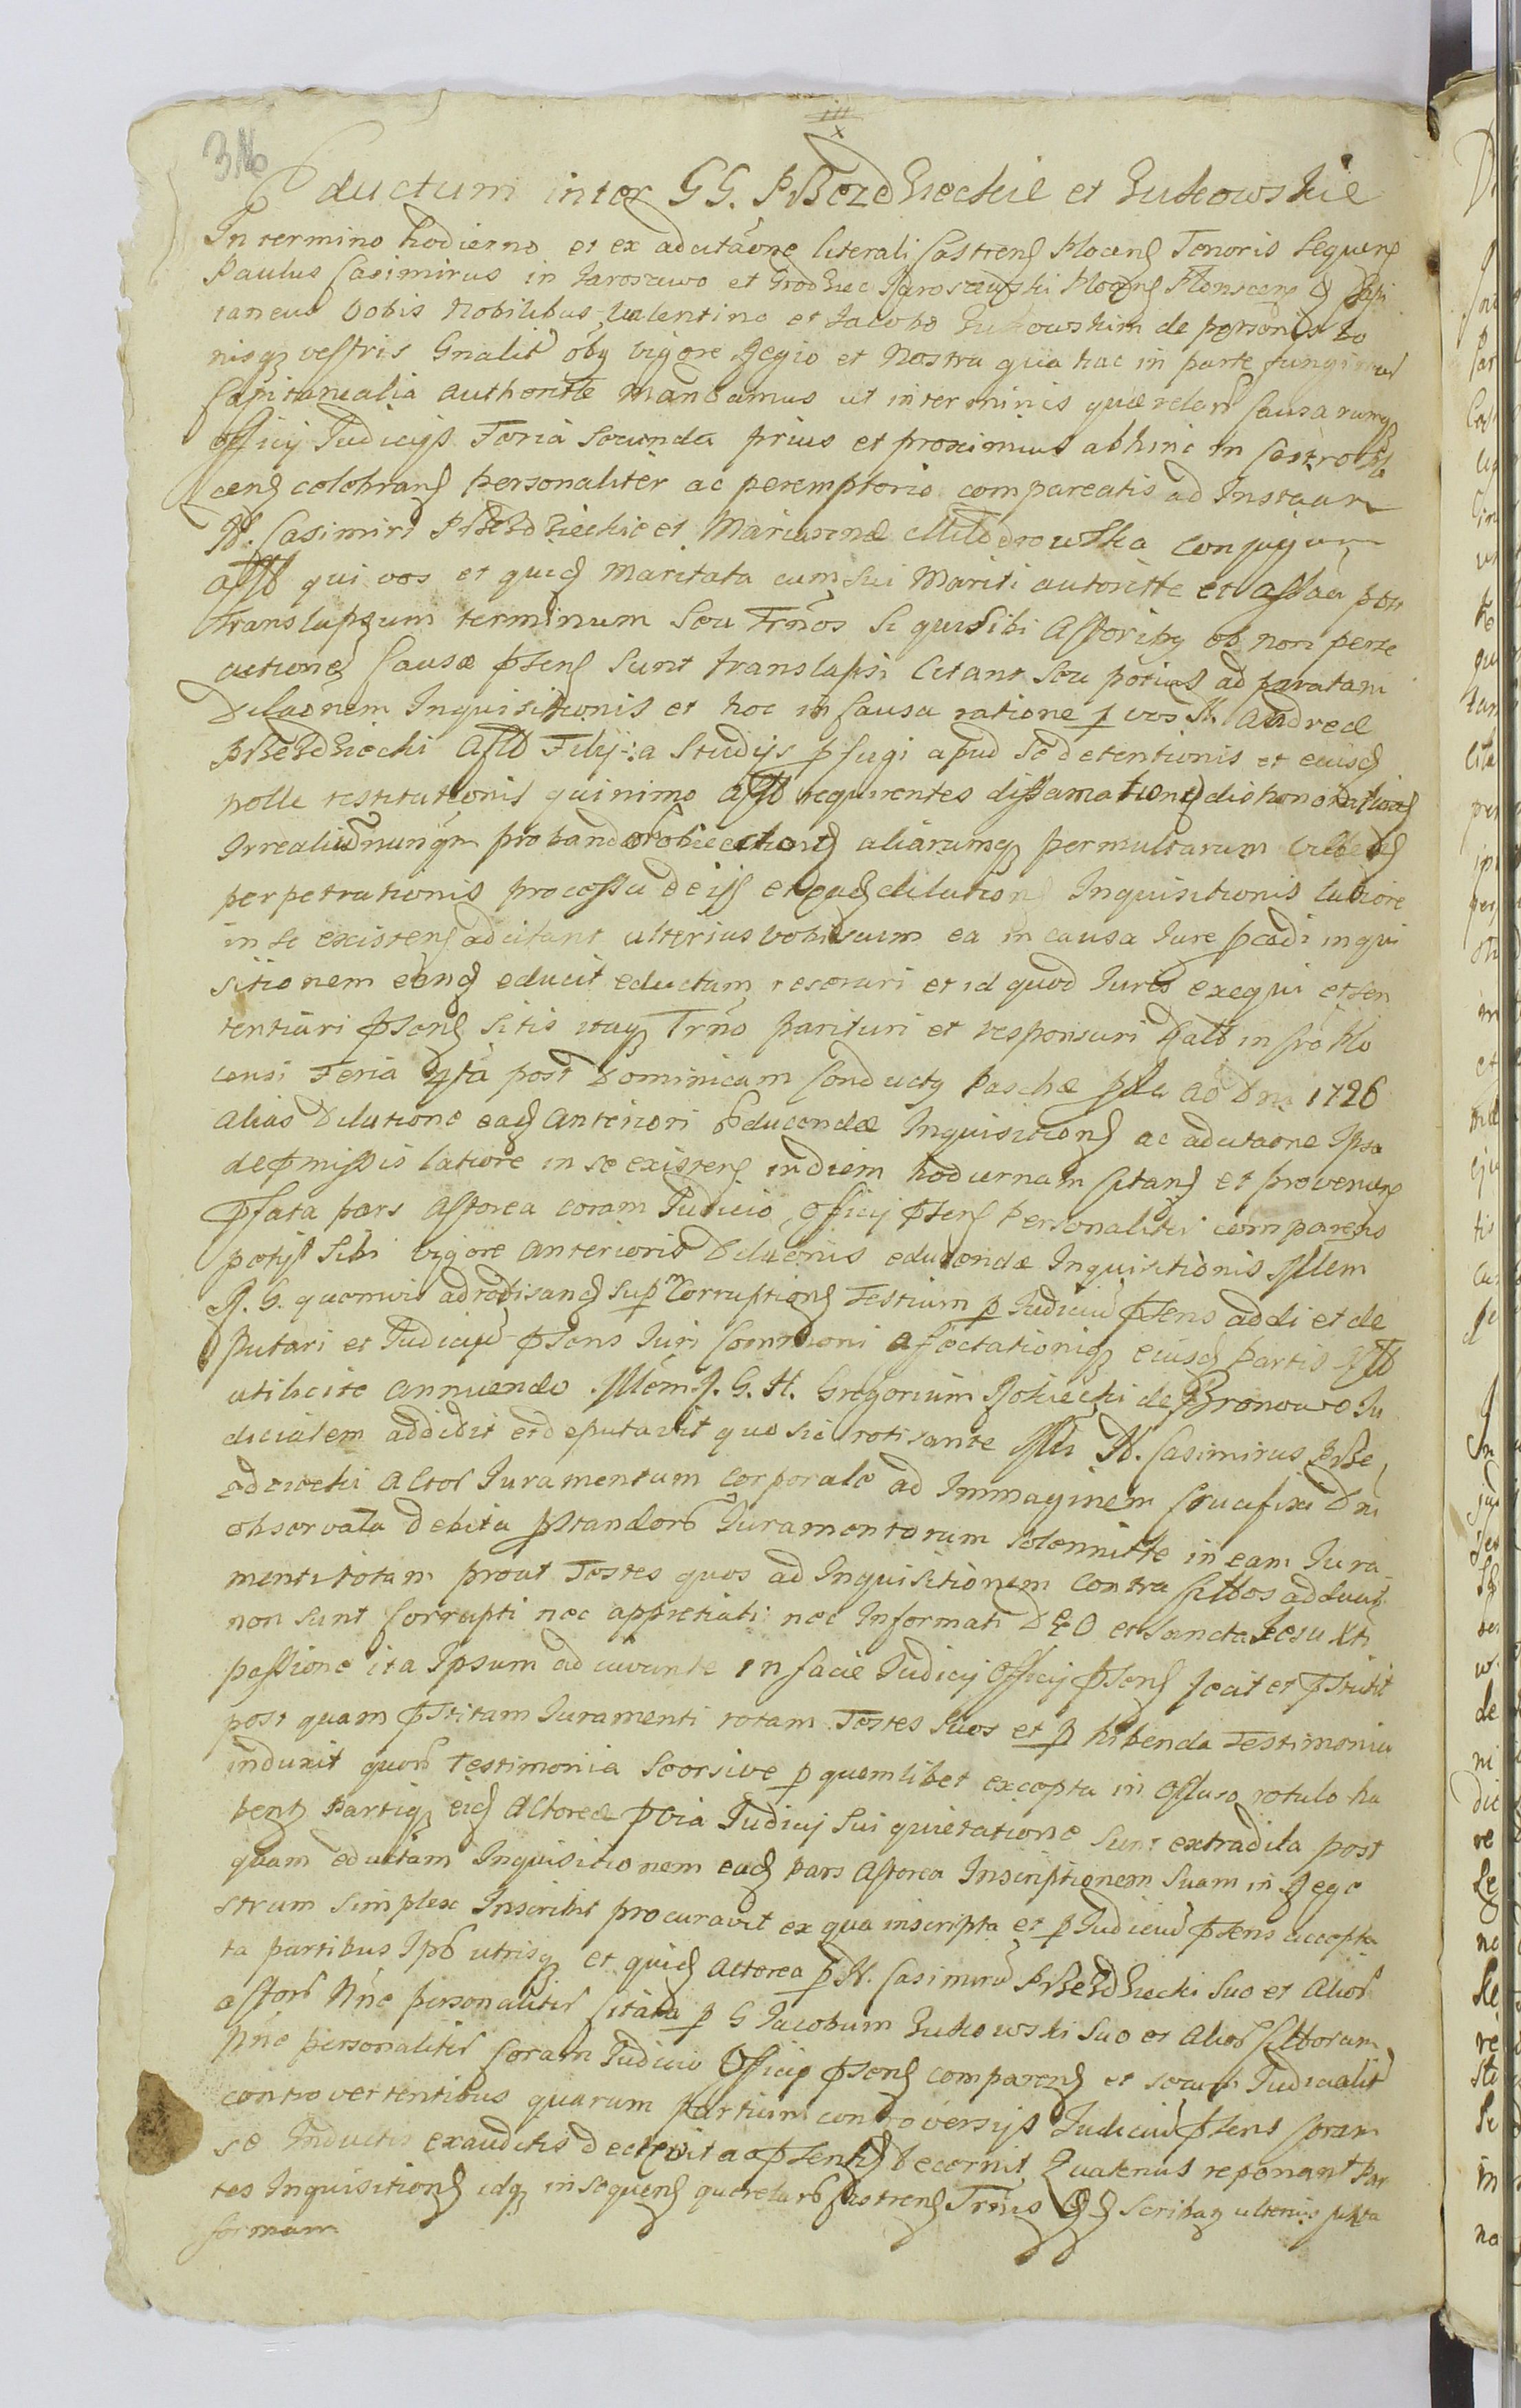 316
Eductum inter GG. PrzezdZieckie et Zukowskie
In termino hodierno et ex adcitaõne literali Castrenß Plocenß Tenoris Sequenß
Paulus Casimirus in Jaroszewo et GrodZiec Jaroszewski Plocenß Plonscenß Capi
taneus Vobis Nobilibus Valentino et Jacobo Zukowskim de personis bo
nisqȝ vestris Gnalitr obȝ vigore Regio et Nostra qua hac in parte fungimur
Capitaneali authoritte mandamus ut in terminis quærelarū Causarumqȝ
officij Judicijs Feria Secunda prius et proximius abhinc in Castro Plo
cenß celebranß personaliter ac peremptorie compareatis ad Instaam
N. Casimiri PrzezdZieckie et Marianne Młodzianowska Conjugum
actorū qui vos et quidē maritata cum sui Mariti autoritte et assaa post
translapsum terminum seu Trnos si qui sibi Actoribȝ ob non perse
cutionē Causæ pñtenß sunt translapsi Citant seu potius ad paratam
Dilaõnem Inquisitionis et hoc in Causa ratione p vos N. Andreæ
PrzeZdZiecki Actorū Filij a Studijs pfugi apud se detentionis et eiusdē
nolle restitutionis quinimo Actorū requirentes diffamationē dishonorationē
Irrealiū nunqm probandorū obiectionē aliarumqȝ permultarum
perpetrationis processu de ijs et eadē dilationē Inquisitionis latiore
in se existenß adcitant ulterius vobiscum ea in causa Jure pcedi inqui
sitionem eandē educit eductam reserari et id quod Juris exequi et sen
tentiari pñtenß sitis itaqȝ Trno parituri et responsuri Datū in Cro Plo
censi Feria 4ta post Dominicam Conductȝ Paschæ pxla Ao Dni 1726
Alias Dilatione eadē anteriori Educendæ Inquisitionē ac adcitaone Ipsa
de pmissis latiore in se existenß in diem hodiernam Citanß et provenienß
Pfata pars Actorea coram Judicio Officij pñtenß Personaliter comparens
petijt Sibi vigore anterioris Dilaõnis educendæ Inquisitionis Mlem
R. G. quamvis ad rotisandē sup Corruptionē Testium p Judiciū pñtens addi et de
putari et Judiciū pñtens Juri Communi affectationiqȝ eiusdē partis Actorū
utilicite annuendo Mlem R. G. N. Gregorium Rokicki de Bronowo Ju
dicialem addidit et deputavit quo sic rotisante Mlis N. Casimirus Prze
zdziecki Actor Juramentum corporale ad Immaginem Crucifixi Dni
observata debita pstandorū Juramentorum solennitte in eam Jura
menti rotam prout Testes quos ad Inquisitionem contra Cittos adduxit
non sunt Corrupti nec appretiati nec Informati DEO et Sancta Jesu Xti
passione ita Ipsum adiuvante in facie Judicij Officij pñtenß fecit et pstitit
post quam pstitam Juramenti rotam Testes Suos et phibenda Testimonia
induxit quorū testimonia Seorsive p quemlibet excepta in Clauso rotulo ha
bentȝ Partiqȝ eidē Actoreæ pvia Judicij Sui quietatione sunt extradita post
quam eductam Inquisitionem eadē Pars Actorea Inscriptionem Suam in Rege
strum simplex Inscribi procuravit ex qua inscripta et p Judiciū pñtens accepta
ta partibus Ipsis utrisqȝ et quidē Actorea p N. Casimirū PrzeZdZiecki Suo et Aliorū
Actorū Nne personaliter Citata p G Jacobum Zukowski Suo et Aliorū Cittorum
Nne personaliter Coram Judicio Officij pñtenß comparenß et secum Judicialitr
controvertentibus quarum Partium controversijs Judiciū pñtens Coram
se Inductis exauditis decrevit ac pñtentibȝ decernit Quatenus reponant Par
tes Inquisitionē idqȝ in Sequenß querelarū Castrenß Trnis Scribaȝ ulterius juxta
formam